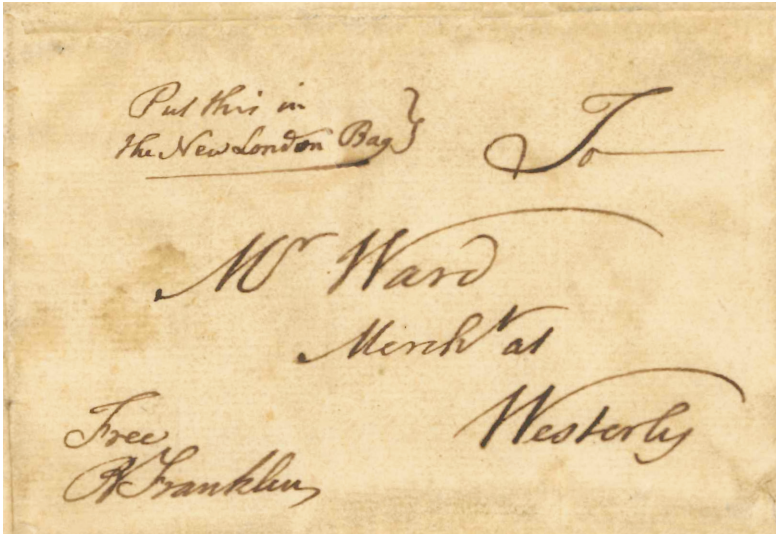 Put this in
the New London Bag
To
Mr Ward
Mercht at
Westerly
Free
B Franklin